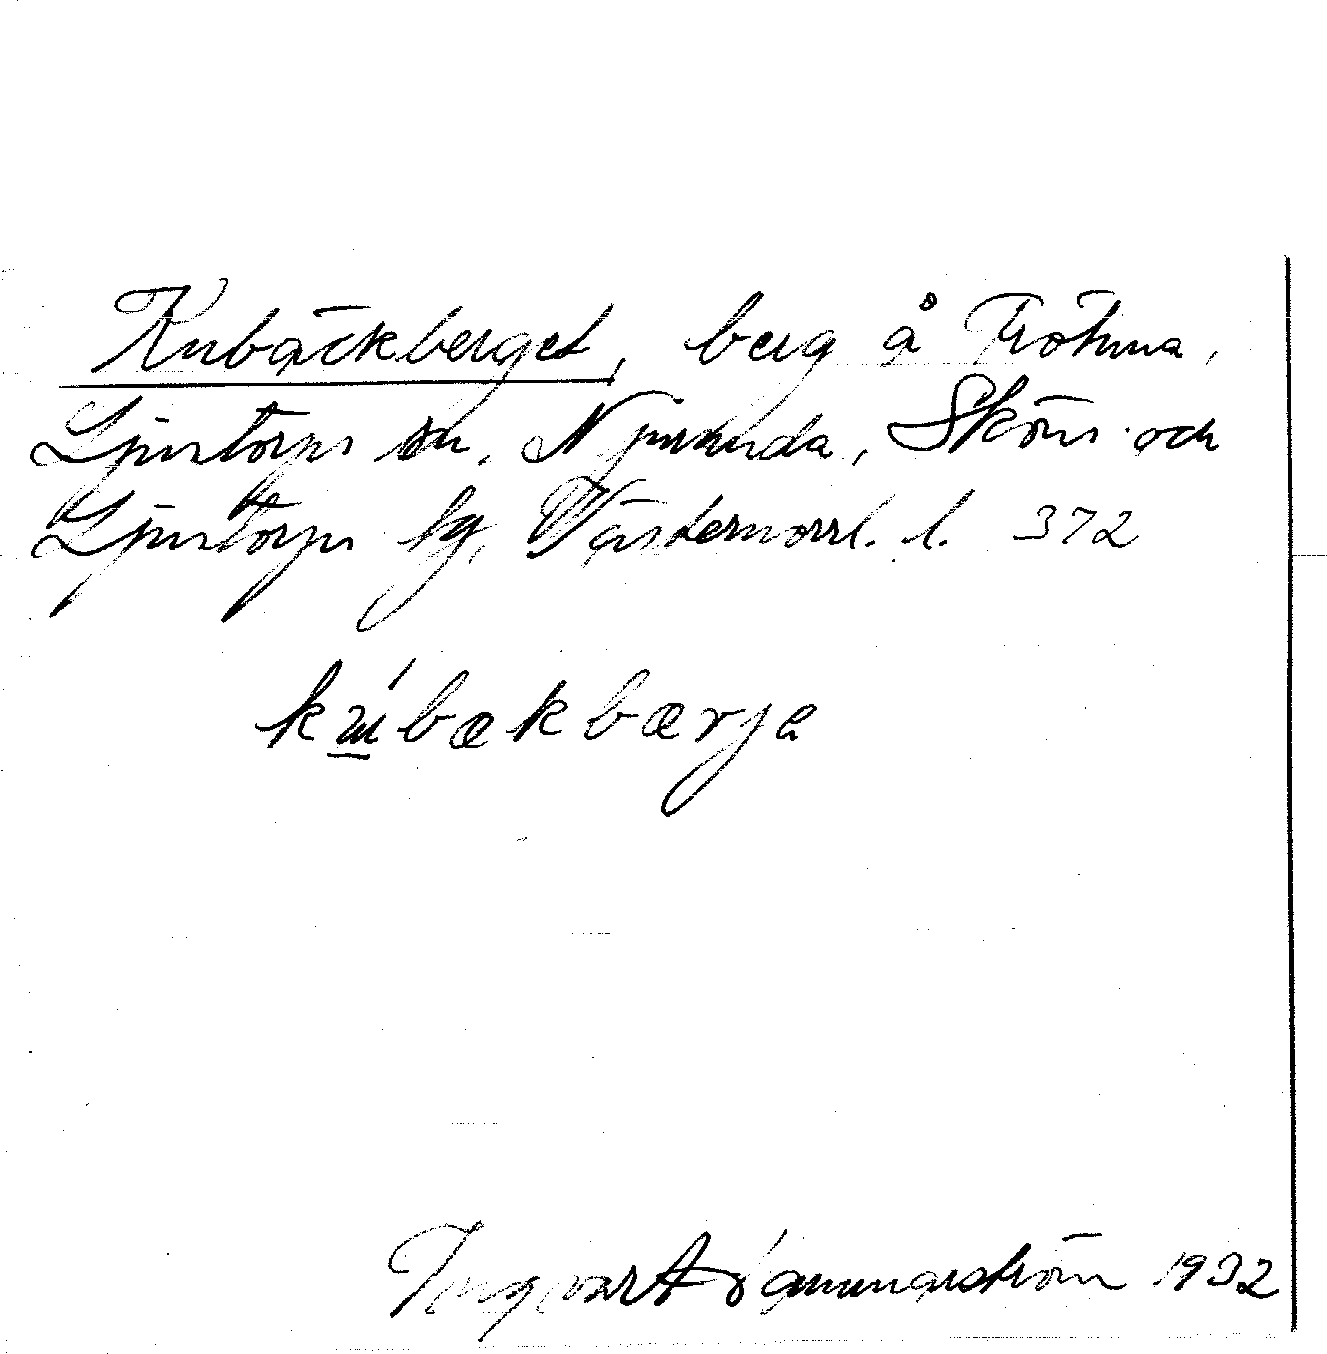 Kubäckberget, berg å Frötuna,
Ljustorps sn, Njurunda, Sköns och
Ljustorps tg, Västernorrl. l. 372
kúbækbærje
Ingvart 1932